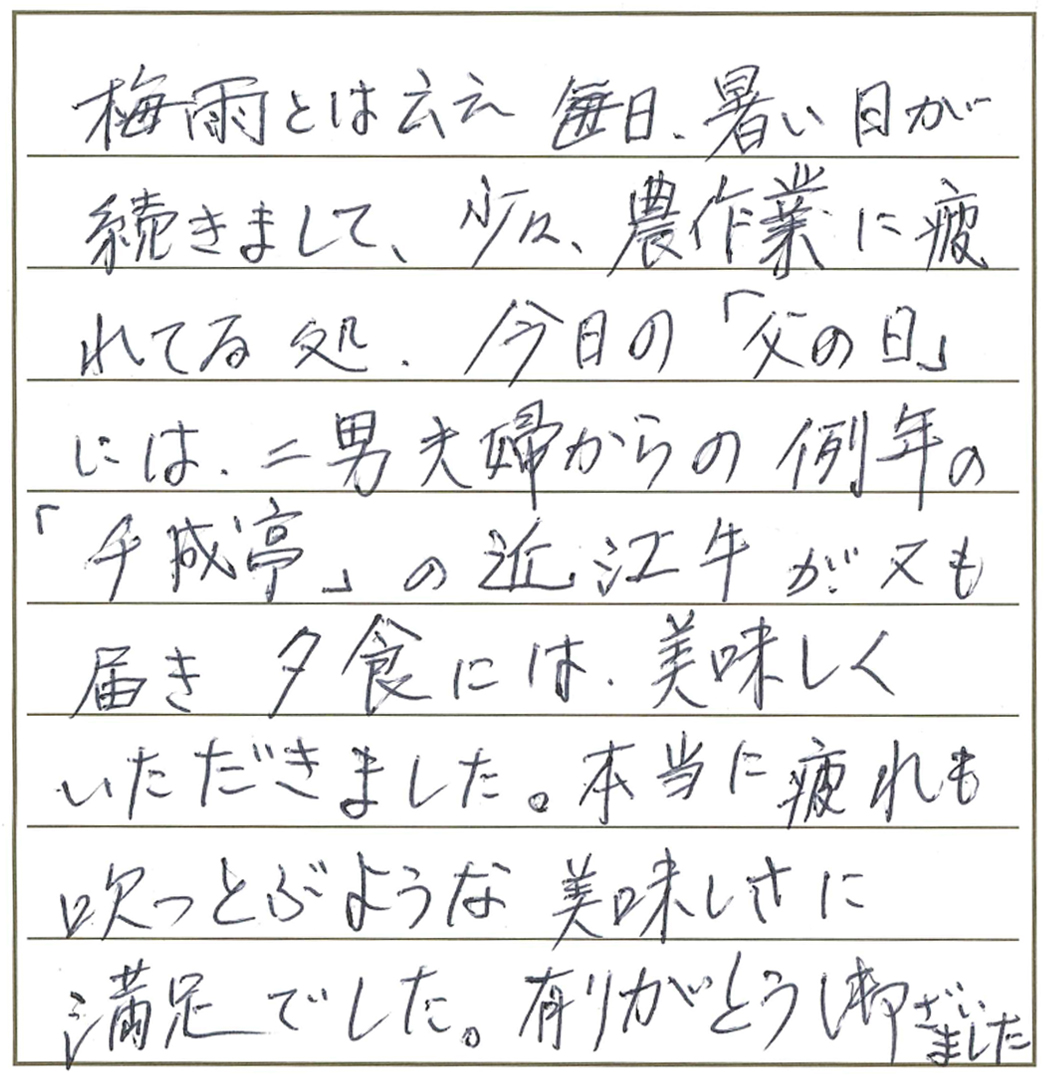 梅雨とは云え 毎日、暑い日が
続きまして、少々、農作業に疲
れてる処、今日の「父の日」
には、二男夫婦からの例年の
「千成亭」の近江牛が又も
届き夕食には、美味しく
いただきました。本当に疲れも
吹っとぶような美味しさに
満足でした。有りがとうし御ざい
ました